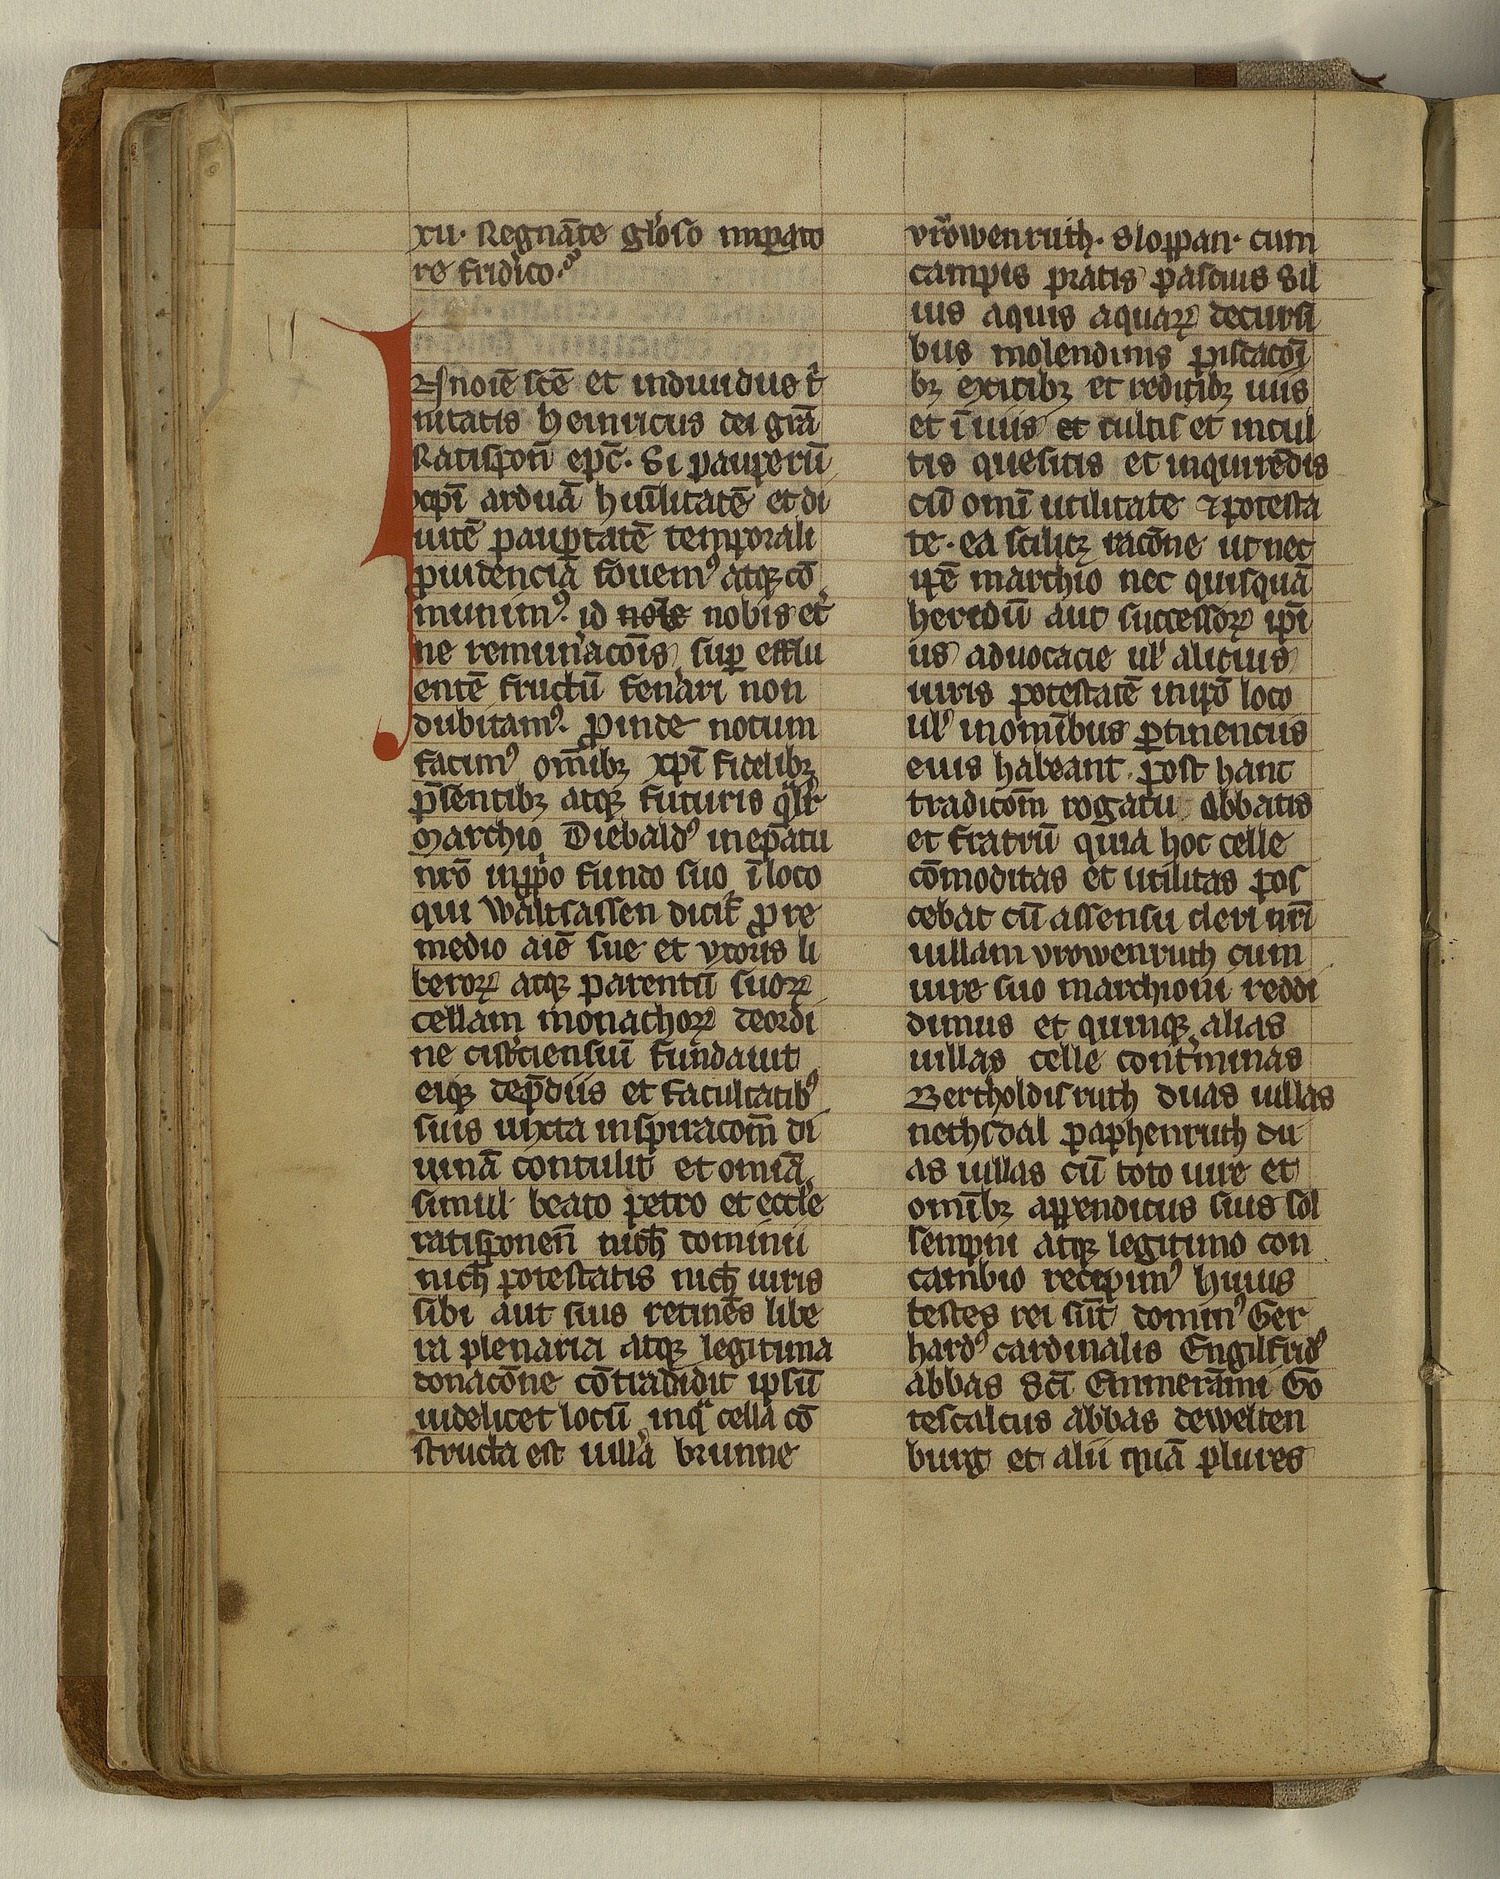 xii. Regnāte glōso impato
re fridico.
In noīe scē et indiuidue tͥ
nitatis heinricus dei grā
Ratispoñ epc̄. Si pauperū
xpī arduā hūilitatē et di
uitē paup̱tatē temporali
p̱uidencia fouemꝰ atqꝫ cō
munimꝰ. id nobis et͛
ne remun͛acōis sup̱ efflu
entē fructū fen͛ari non
dubitamꝰ. Proinde notum
facimꝰ om̄ibꝫ xpī fidelibꝫ
p̄sentibꝫ atqꝫ futuris qͣlr̄
Marchio Diebaldꝰ in ep̄atu
nr̄o in pp̱o fundo suo ī loco
qui Waltsassen dicit᷑ pro re
medio aīe sue et vxoris li
beroꝝ atqꝫ parentū suoꝝ
cellam monachoꝝ de ordi
ne cist͛ciensiū fundauit
eiqꝫ de p̄diis et facultatibꝰ
suis iuxta inspiracom̄ di
uinā contulit et omīa
simul beato petro et eccl̄e
ratisponeñ nich̄ dominii
nich̄ potestatis nich̄ iuris
sibi aut suis retinēs libe
ra plenaria atqꝫ legitima
donacōne cōtradidit ipsū
uidelicet locū in qͣ cella cō
structa est uilla brunne
vrͦowenruth. Sloppan. cum
campis pratis pascuis Sil
uis aquis aquaꝝ decursi
bus molendinis piscacōi
bꝫ exitibꝫ et reditibꝫ uiis
et īuiis et cultis et incul
tis quesitis et inquirēdis
cū omī utilitate ⁊ potesta
te. ea scilicꝫ racōne ut nec
ip̄e marchio nec quisquā
heredū aut successoꝝ ipi
us aduocacie ul̓ alicuius
iuris potestatē in ip̄o loco
ul̓ in omībus ꝑtinenciis
eius habeant. post hanc
tradicōm rogatu Abbatis
et fratrū quia hoc celle
cōmoditas et utilitas pos
cebat cū assensu cleri nr̄i
uillam vrowenruth cum
iure suo marchioni reddi
dimus et quinqꝫ alias
uillas celle cont͛minas
Bertholdisruth duas uillas
nethstal paphenruth du
as uillas cū toto iure et
omībꝫ appendiciis suis sol
sempni atqꝫ legitimo con
cambio recepimꝰ huius
testes rei sūt dominꝰ Ger
hardꝰ cardinalis Engilfridꝰ
abbas Sc̄i Emmerāmi Go
tescalcus abbas de welten
burg et alii quā plures